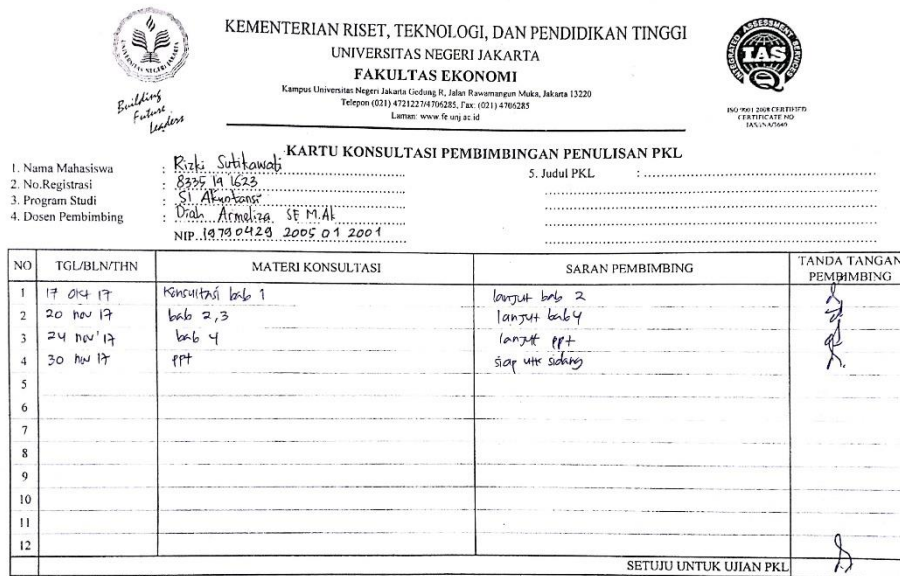 KEMENTERIAN RISET, TEKNOLOGI, DAN PENDIDIKAN TINGGI
UNIVERSITAS NEGERI JAKARTA
FAKULTAS EKONOMI
Kampus Universitas Negeri Jakarta Gedung R, Jalan Rawamangun Muka, Jakarta 13220
Telepon (021) 4721227/4706285, Fax: (021) 4706285
Laman: www.fe.unj.ac.id
Building
Future
Leaders
INTEGRATED ASSESSMENT SERVICES
IAS
ISO 9001:2008 CERTIFIED
CERTIFICATE NO
KARTU KONSULTASI PEMBIMBINGAN PENULISAN PKL
1. Nama Mahasiswa : Rizki Sutikawati
2. No.Registrasi : 8335 14 1623
3. Program Studi : S1 Akuntansi
4. Dosen Pembimbing : Diah Armeliza SE M.Ak
NIP. 19790429 2005 01 2001
5. Judul PKL :
NO TGL/BLN/THN MATERI KONSULTASI SARAN PEMBIMBING TANDA TANGAN PEMBIMBING
1 17 okt 17 Konsultasi bab 1 lanjut bab 2
2 20 nov 17 bab 2,3 lanjut bab 4
3 24 nov '17 bab 4 lanjut ppt
4 30 nov 17 ppt siap utk sidang
5
6
7
8
9
10
11
12
SETUJU UNTUK UJIAN PKL